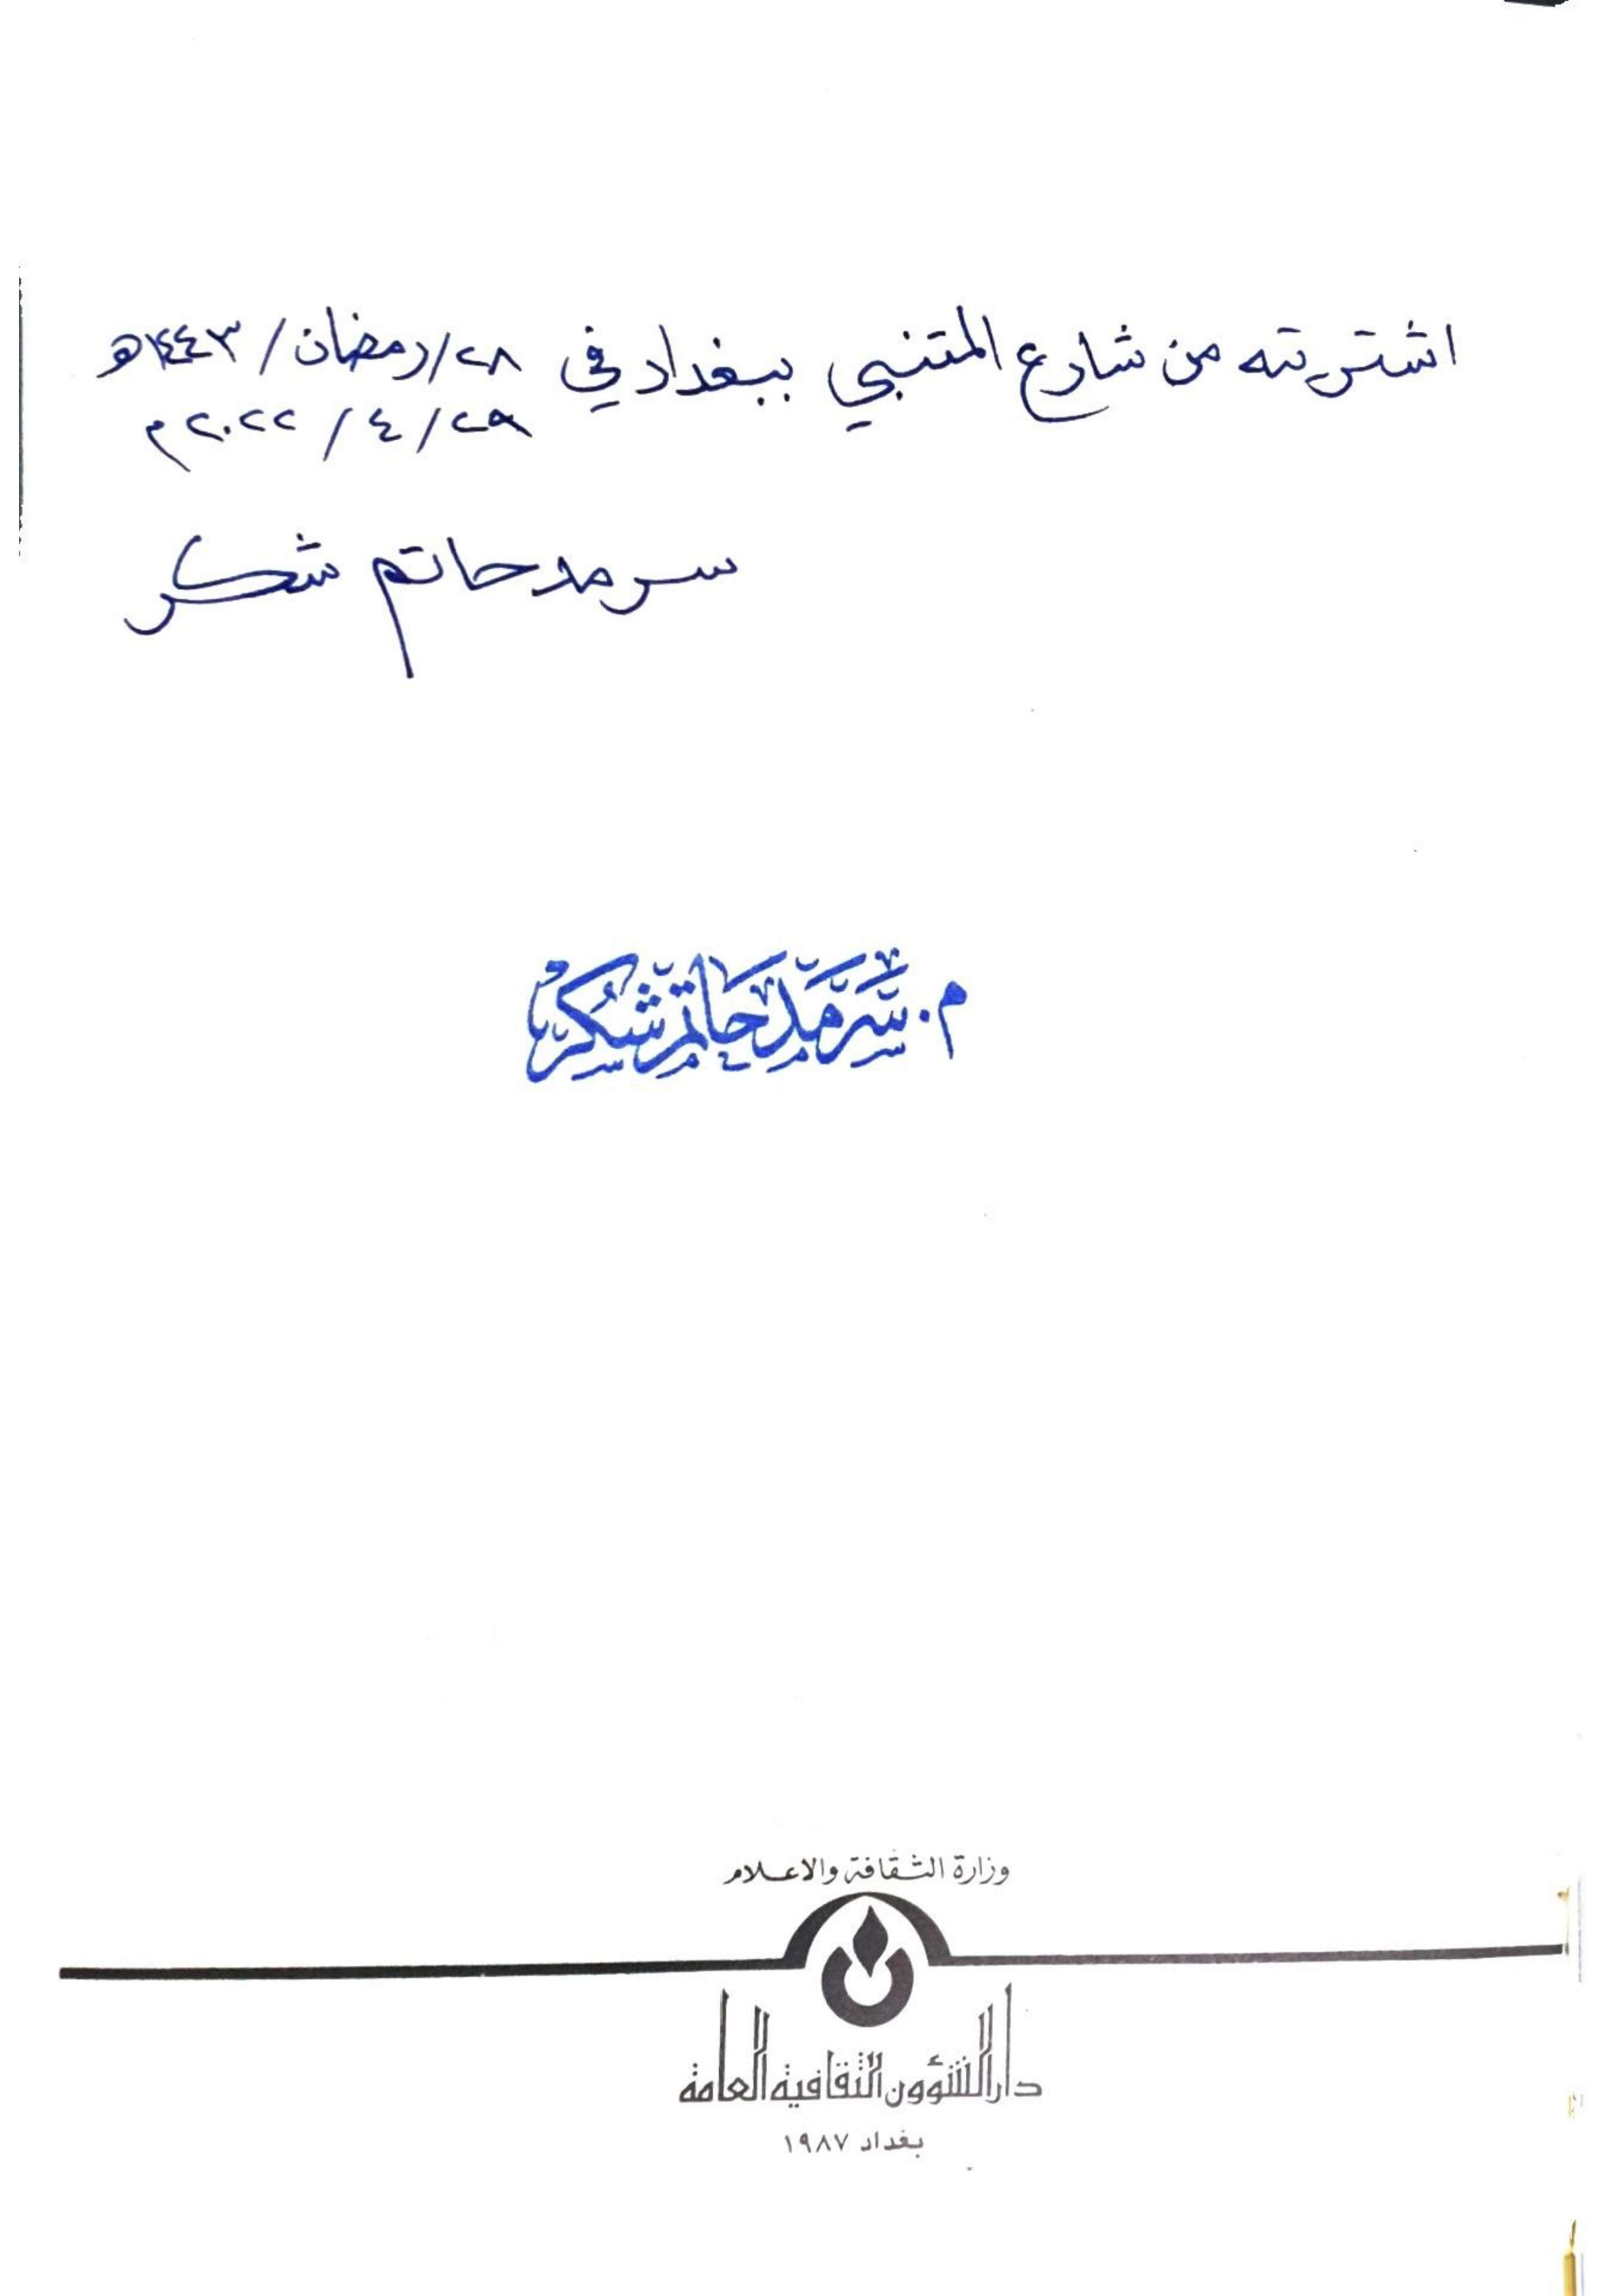 اشتريته من شارع المتنبي ببغداد في ٢٨/رمضان/١٤٤٣هـ
٢٩/٤/٢٠٢٢م
سرمد حاتم شكر
م. سَرمَد حَاتم شُكر
وزارة الثقافة والاعلام
دار الشؤون الثقافية العامة
بغداد ١٩٨٧